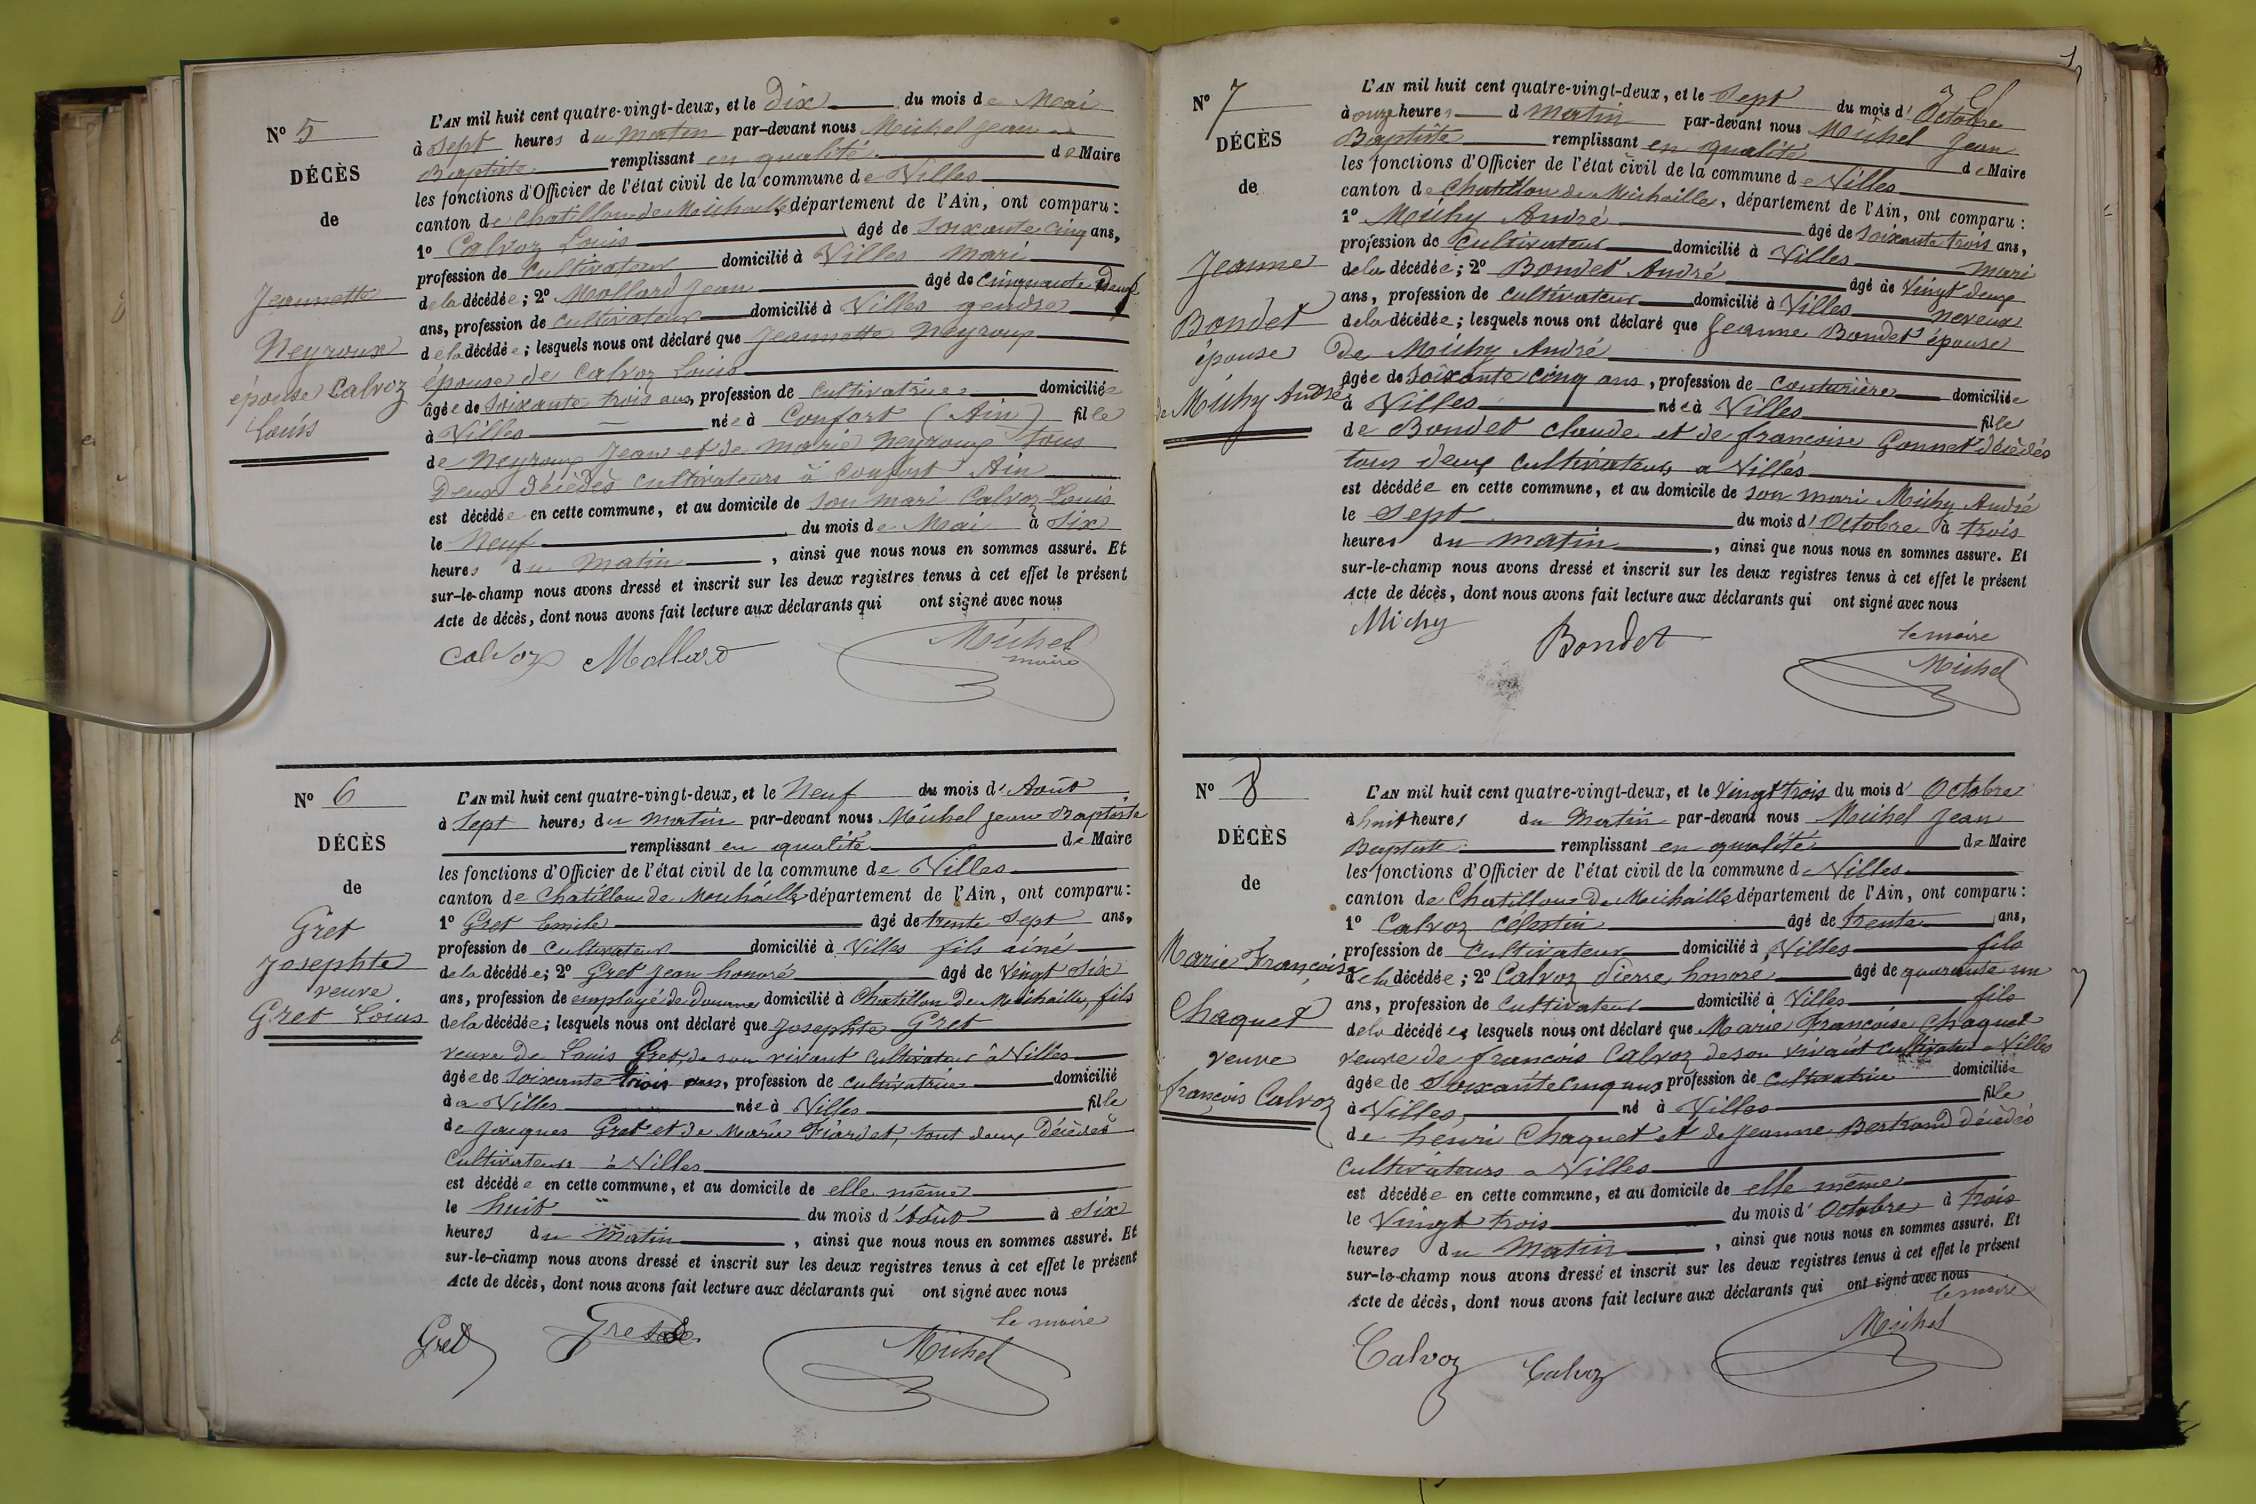 N° 5
DÉCÈS
de
Jeannette
Neyroux
épouse Calvoz
Louis
L'AN mil huit cent quatre-vingt-deux, et le Dix du mois de Mai
à sept heures du Matin par-devant nous Michel Jean
Baptiste remplissant en qualité de Maire
les fonctions d'Officier de l'état civil de la commune de Villes
canton de Chatillon de Michaille, département de l'Ain, ont comparu :
1° Calvoz Louis âgé de soixante cinq ans,
profession de Cultivateur domicilié à Villes Mari
de la décédée ; 2° Mollard Jean âgé de cinquante Deux
ans, profession de cultivateur domicilié à Villes gendre
de la décédée ; lesquels nous ont déclaré que Jeannette Neyroux
épouse de Calvoz Louis
âgée de Soixante trois ans, profession de cultivatrice domiciliée
à Villes née à Confort (Ain) fille
de Neyroux Jean et de Marie Neyroux tous
Deux Décédés cultivateurs à Confort Ain
est décédée en cette commune, et au domicile de son mari Calvoz Louis
le Neuf du mois de Mai à Six
heures du matin , ainsi que nous nous en sommes assuré. Et
sur-le-champ nous avons dressé et inscrit sur les deux registres tenus à cet effet le présent
Acte de décès, dont nous avons fait lecture aux déclarants qui ont signé avec nous
Calvoz Mollard Michel
maire
N° 6
DÉCÈS
de
Gret
Josephte
veuve
Gret Louis
L'AN mil huit cent quatre-vingt-deux, et le Neuf du mois d'Août
à Sept heures du matin par-devant nous Michel Jean Baptiste
remplissant en qualité de Maire
les fonctions d'Officier de l'état civil de la commune de Villes
canton de Chatillon de Michaille département de l'Ain, ont comparu :
1° Gret Emile âgé de trente sept ans,
profession de Cultivateur domicilié à Villes fils ainé
de la décédée ; 2° Gret Jean honoré âgé de Vingt Six
ans, profession de employé de Douane domicilié à Chatillon De Michaille, fils
de la décédée ; lesquels nous ont déclaré que Josephte Gret
veuve de Louis Gret, de son vivant cultivateur à Villes
âgée de Soixante trois ans, profession de cultivatrice domicilié
à Villes née à Villes fille
de Jacques Gret et de Marie Fiardet, tout deux Décédés
Cultivateurs à Villes
est décédée en cette commune, et au domicile de elle même
le huit du mois d'Août à Six
heures du Matin , ainsi que nous nous en sommes assuré. Et
sur-le-champ nous avons dressé et inscrit sur les deux registres tenus à cet effet le présent
Acte de décès, dont nous avons fait lecture aux déclarants qui ont signé avec nous
le maire
Gret Michel
N° 7
DÉCÈS
de
Jeanne
Bondet
épouse
de Michy André
L'AN mil huit cent quatre-vingt-deux, et le Sept du mois d'Octobre
à onze heures d Matin par-devant nous Michel Jean
Baptiste remplissant en qualité de Maire
les fonctions d'Officier de l'état civil de la commune de Villes
canton de Chatillon de Michaille, département de l'Ain, ont comparu :
1° Michy André âgé de soixante trois ans,
profession de Cultivateur domicilié à Villes mari
de la décédée ; 2° Bondet André âgé de Vingt deux
ans, profession de cultivateur domicilié à Villes neveux
de la décédée ; lesquels nous ont déclaré que Jeanne Bondet épouse
De Michy André
âgée de Soixante cinq ans, profession de Couturière domiciliée
à Villes née à Villes fille
de Bondet claude et de francoise Gonnet décédés
tous deux cultivateurs a Villes
est décédée en cette commune, et au domicile de son mari Michy André
le sept du mois d'Octobre à trois
heures du matin , ainsi que nous nous en sommes assuré. Et
sur-le-champ nous avons dressé et inscrit sur les deux registres tenus à cet effet le présent
Acte de décès, dont nous avons fait lecture aux déclarants qui ont signé avec nous
Michy Bondet le maire
Michel
N° 8
DÉCÈS
de
Marie Françoise
Chaquet
veuve
françois Calvoz
L'AN mil huit cent quatre-vingt-deux, et le Vingt trois du mois d'Octobre
à huit heures du Matin par-devant nous Michel Jean
Baptiste remplissant en qualité de Maire
les fonctions d'Officier de l'état civil de la commune de Villes
canton de Chatillon De Michaille département de l'Ain, ont comparu :
1° Calvoz célestin âgé de trente ans,
profession de Cultivateur domicilié à Villes fils
de la décédée ; 2° Calvoz Pierre, honore âgé de quarante un
ans, profession de cultivateur domicilié à Villes fils
de la décédée, lesquels nous ont déclaré que Marie Françoise Chaquet
veuve de francois Calvoz de son vivant cultivateur a Villes
âgée de Soixante cinq ans profession de cultivatrice domiciliée
à Villes, né à Villes fille
de henri Chaquet et de Jeanne Bertrand décédés
cultivateurs a Villes
est décédée en cette commune, et au domicile de elle même
le Vingt trois du mois d'Octobre à trois
heures du Matin , ainsi que nous nous en sommes assuré. Et
sur-le-champ nous avons dressé et inscrit sur les deux registres tenus à cet effet le présent
Acte de décès, dont nous avons fait lecture aux déclarants qui ont signé avec nous
le maire
Calvoz Calvoz Michel